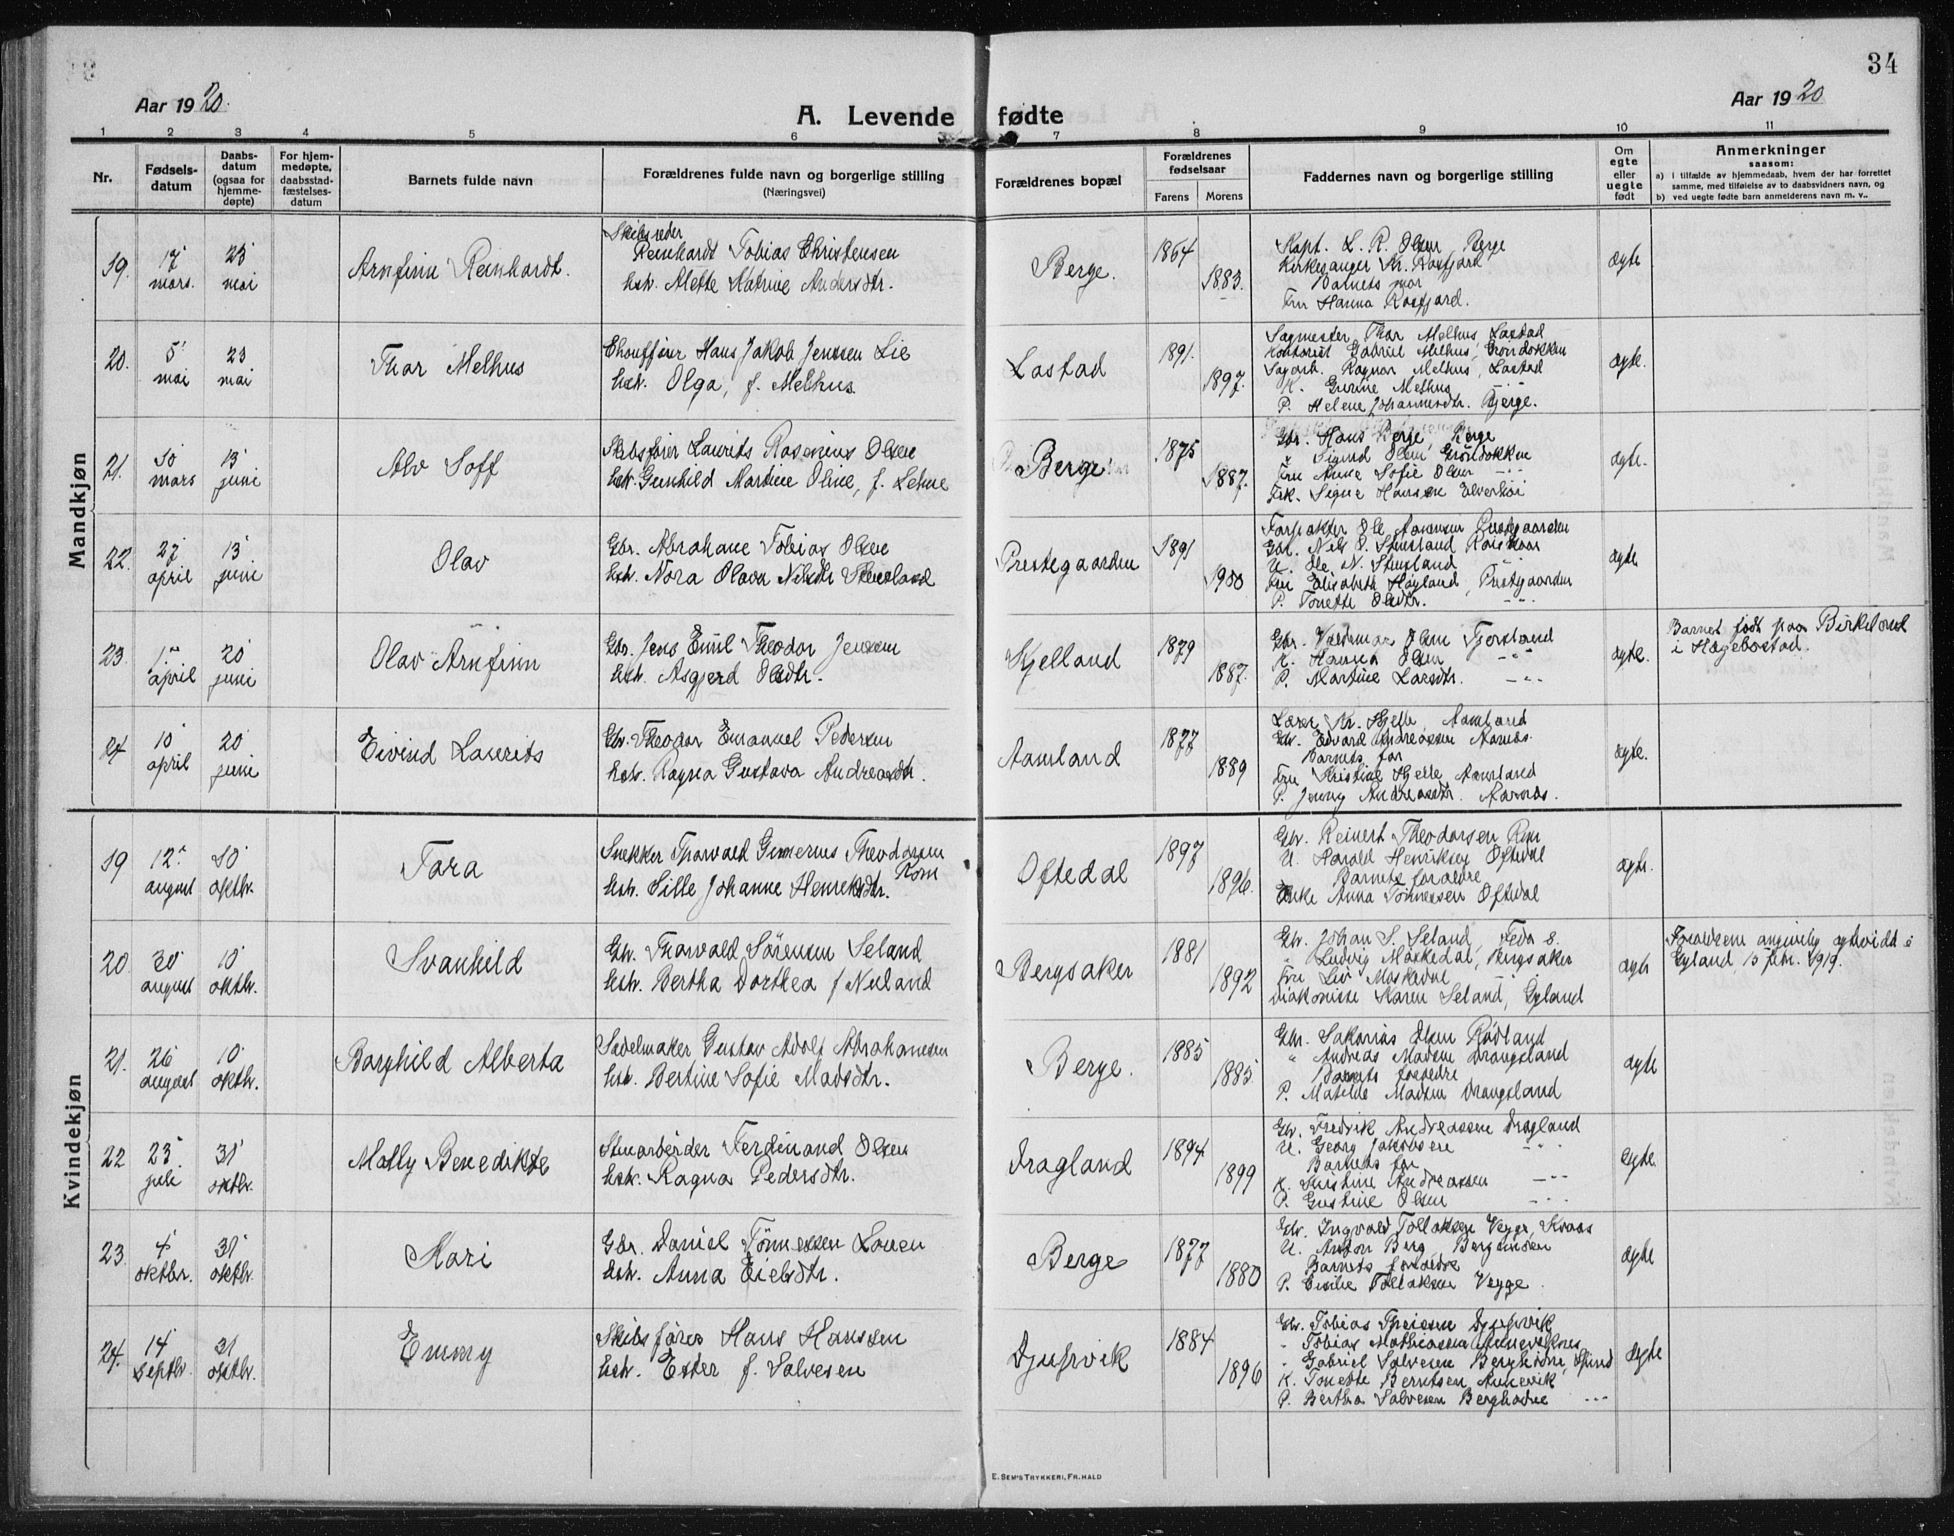 34
Aar 1920.
A. Levende fødte
Aar 1920
1 2 3 4 5 6 7 8 9 10 11
Nr.
Fødsels-
datum
Daabs-
datum
(ogsaa for
hjemme-
døpte)
For hjem-
medøpte,
daabsstad-
fæstelses-
datum
Barnets fulde navn
Forældrenes fulde navn og borgerlige stilling
(Næringsvei)
Forældrenes bopæl
Forældrenes
fødselsaar
Farens
Morens
Faddernes navn og borgerlige stilling
Om
egte
eller
uegte
født
Anmerkninger
saasom:
a) i tilfælde av hjemmedaab, hvem der har forrettet
samme, med tilføielse av to daabsvidners navn, og
b) ved uegte fødte barn anmelderens navn m. v..
Mandkjøn
19. 17 mars. 23 mai
Arnfinn Reinhardt.
Skibsreder
Reinhardt Tobias Christensen
hst. Alette Katrine Andersdtr.
Berge. 1864 1883.
Kapt. L. R. Olsen Berge
Kirkesanger Kr. Rosfjord
Barnets mor
Fru Hanna Rosfjord.
ægte
20. 5 mai 23 mai
Thor Melhus
Chouffør Hans Jakob Jensen Lie
hst. Olga, f. Melhus.
Lastad 1891. 1897.
Sagmester Thor Melhus Lastad
Kontorist Gabriel Melhus, Grøndokken
Sagarb. Ragnar Melhus, Lastad
K. Gurine Melhus -"-
P. Helene Johannesdtr. Bjerge.
ægte.
21. 30 mars 13 juni
Alv Loff
Skibsfører Laurits Rasmus Olsen
hst. Gunhild Martine Oline, f. Lehne
Berge 1875 1887.
Gbr. Hans Berge, Berge
" Sigurd Olsen Grøndokken
Fru Anne Sofie Olsen -"-
Frk. Signe Hansen Elverhøi
ægte.
22. 27 april 13 juni
Olav
Gbr. Abrahane Tobias Olsen
hst. Nora Olava Nilsdtr Stensland
Prestegaarden 1891 1900
Forpakter Ole Aanensen Prestgaarden
Gbr. Nils O. Stensland
U. Ole N. Stensland
Fru Elisabeth Høyland, Prestgaarden
P. Tonette Olsdtr. -"-
ægte
23. april 20 juni
Olav Arnfinn
Gbr. Jens Emil Theodor Jensen
hst. Asgjerd Olsdtr.
Kjelland 1879 1887.
Gbr. Valdemar Olsen Tjorsland
K. Hanna Olsen -"-
P. Martine Larsdtr. -"-
ægte.
Barnet født paa Birkeland
i Hægebostad.
24 10 april 20 juni
Eivind Laurits
Gbr. Theodor Emanuel Pedersen
hst. Ragna Gustava Andreasdtr.
Aamland 1877 1889
Lærer Kr. Hjelle, Aamland
Gbr. Edvard Andreassen Aarnes.
Barnets far
Fru Kristine Hjelle Aamland
P. Jenny Andreasdtr. Aarnes.
ægte.
Kvindekjøn
19 12 august 10 oktbr.
Tora
Snekker Thorvald Gunnerius Theodorsen
Rom
hst. Sille Johanne Henriksdtr.
Oftedal 1897 1896.
Gbr. Reinert Theodorsen Rom
U. Harald Henriksen Oftedal
Barnets foræloldre
Enke Anna Tønnessen Oftedal
ægte.
20. 30 august 10 oktbr.
Svanhild
Gbr. Thorvald Sørensen Seland
hst. Bertha Dorthea f Neuland
Bergsaker 1881 1892
Gbr. Johan S. Seland, Feda s.
" Ludvig Moskedal, Bergsaker
Fru Liv Moskedal
Diakonisse Karen Seland, Gyland
ægte
Forældrene angivelig egteviddt i
Gyland 15 febr. 1919.
21. 26 august 10 oktbr.
Borghild Alberta
Sadelmaker Gustav Adolf Abrahamsen
hst. Bertine Sofie Madsdtr.
Berge. 1885 1885.
Gbr. Sakarias Olsen Rødland
" Andreas Madsen Drangsland
Barnets forældre
P. Matilde Madsen Drangsland
ægte
22 23 juli 31 oktbr.
Molly Benedikte
Stenarbeider Ferdinand Olsen
hst. Ragna Pedersdtr.
Dragland 1894 1899
Gbr. Fredrik Andreassen Dragland
U. Georg Jakobsen -"-
Barnets far
K. Andreassen -"-
P. Gustine Olsen -"-
ægte.
23. 4 oktbr. 31 oktbr.
Kari
Gbr. Daniel Tønnessen Louen
hst. Anna Eielsdtr.
Berge 1877 1880
Gbr. Ingvald Tollaksen Vegge, Kvaas
U. Anton Berg, Bergensen
Barnets forældre
P. Emilie Tollaksen Vegge.
ægte
24. 14 septbr. 31 oktbr.
Emmy
Skibsfører Hans Hanssen
hst. Ester f. Salvesen
Djupvik 1884 1896
Gbr. Tobias Djupvik
" Tobias Mathiassen
" Gabriel Salvesen Berghodne, Spind
K. Tonette Berntsen Annevik
P. Bertha Salvesen Berghodne -"-
ægte
E. Sem's Trykkeri, Fr.hald